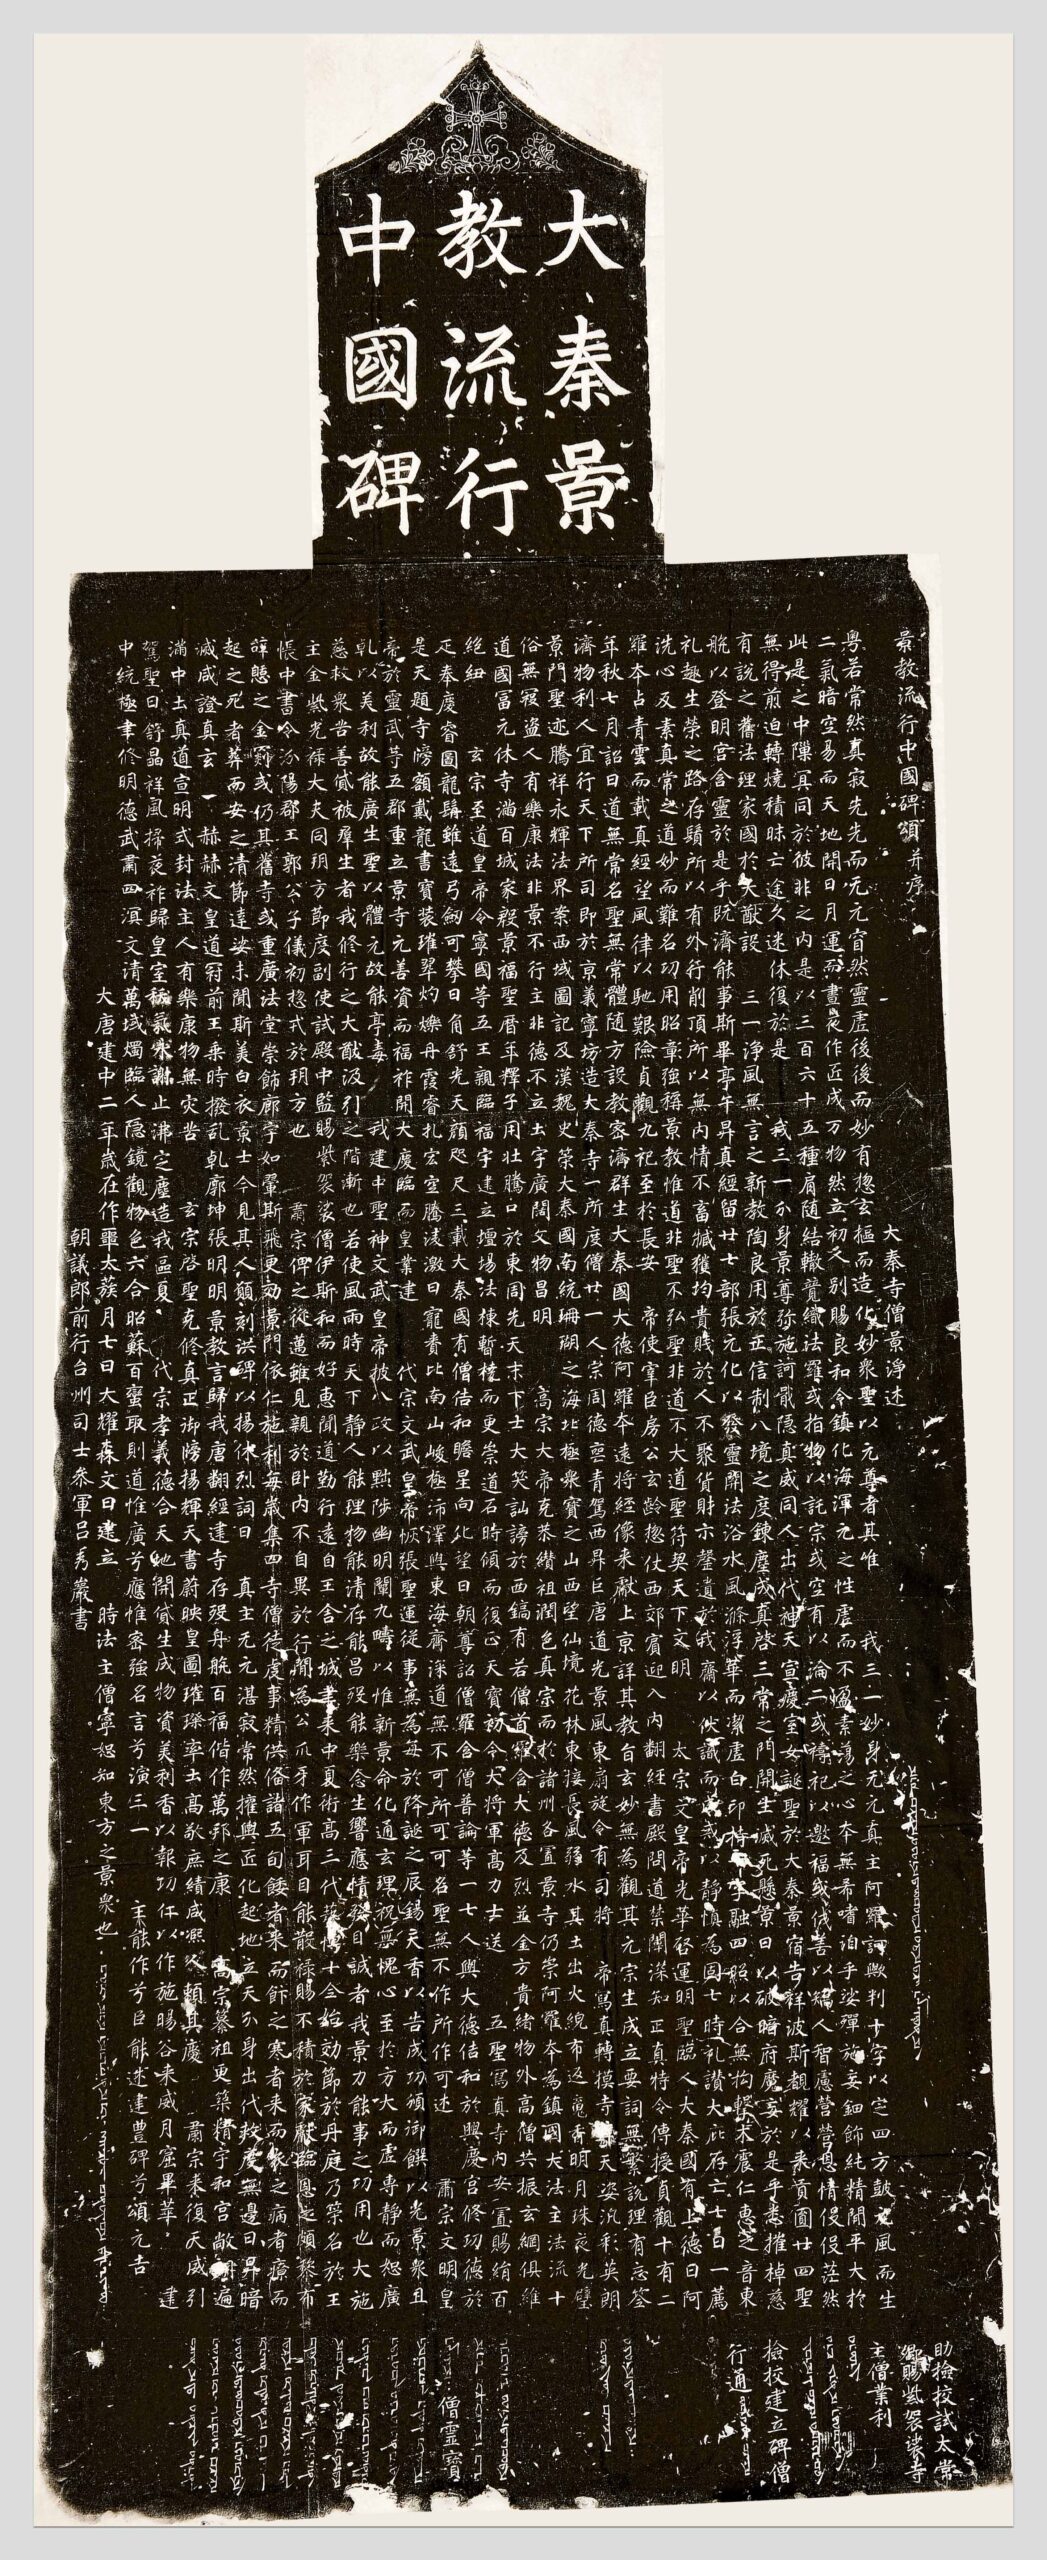 大秦景
教流行
中國碑
景教流行中國碑頌并序
大秦寺僧景淨述
粵若常然真寂先先而无元窅然靈虛後後而妙有惣玄樞而造化妙眾聖以元尊者其唯 我三一妙身无元真主阿羅訶歟判十字以定四方鼓元風而生
二氣暗空易而天地開日月運而晝夜作匠成万物然立初人別賜良和令鎮化海渾元之性虛而不盈素蕩之心本無希嗜洎乎娑殫施妄鈿飾純精閒平大於
此是之中隟冥同於彼非之內是以三百六十五種肩隨結轍競織法羅或指物以託宗或空有以淪二或禱祀以邀福或伐善以矯人智慮營營恩情役役茫然
無得煎迫轉燒積昧亡途久迷休復於是 我三一分身景尊弥施訶戢隱真威同人出代神天宣慶室女誕聖於大秦景宿告祥波斯覩耀以來貢圓廿四聖
有說之舊法理家國於大猷設 三一淨風無言之新教陶良用於正信制八境之度鍊塵成真啓三常之門開生滅死懸景日以破暗府魔妄於是乎悉摧棹慈
航以登明宮含靈於是乎既濟能事斯畢亭午昇真經留廿七部張元化以發靈關法浴水風滌浮華而潔虛白印持十字融四照以合無拘擊木震仁惠之音東
礼趣生榮之路存鬚所以有外行削頂所以無內情不畜臧獲均貴賤於人不聚貨財示罄遺於我齋以伏識而成戒以靜慎為固七時礼讚大庇存亡七日一薦
洗心反素真常之道妙而難名功用昭彰強稱景教惟道非聖不弘聖非道不大道聖符契天下文明 太宗文皇帝光華啓運明聖臨人大秦國有上德曰阿
羅本占青雲而載真經望風律以馳艱險貞觀九祀至於長安 帝使宰臣房公玄齡惣仗西郊賓迎入內翻經書殿問道禁闈深知正真特令傳授貞觀十有二
年秋七月詔曰道無常名聖無常體隨方設教密濟群生大秦國大德阿羅本遠將經像來獻上京詳其教旨玄妙無為觀其元宗生成立要詞無繁說理有忘筌
濟物利人宜行天下所司即於京義寧坊造大秦寺一所度僧廿一人宗周德喪青駕西昇巨唐道光景風東扇旋令有司將 帝寫真轉摸寺壁天姿汎彩英朗
景門聖迹騰祥永輝法界案西域圖記及漢魏史策大秦國南統珊瑚之海北極眾寶之山西望仙境花林東接長風弱水其土出火綄布返魂香明月珠夜光璧
俗無寇盜人有樂康法非景不行主非德不立土宇廣闊文物昌明 高宗大帝克恭纘祖潤色真宗而於諸州各置景寺仍崇阿羅本為鎮國大法主法流十
道國富元休寺滿百城家殷景福聖曆年釋子用壯騰口於東周先天末下士大笑訕謗於西鎬有若僧首羅含大德及烈並金方貴緒物外高僧共振玄綱俱維
絕紐 玄宗至道皇帝令寧國等五王親臨福宇建立壇場法棟暫橈而更崇道石時傾而復正天寶初令大將軍高力士送 五聖寫真寺內安置賜絹百
疋奉慶睿圖龍髯雖遠弓劍可攀日角舒光天顏咫尺三載大秦國有僧佶和瞻星向化望日朝尊詔僧羅含僧普論等一七人與大德佶和於興慶宮修功德於
是天題寺牓額戴龍書寶裝璀翠灼爍丹霞睿扎宏空騰凌激日寵賚比南山峻極沛澤與東海齊深道無不可所可可名聖無不作所作可述 肅宗文明皇
帝於靈武等五郡重立景寺元善資而福祚開大慶臨而皇業建 代宗文武皇帝恢張聖運從事無為每於降誕之辰錫天香以告成功頒御饌以光景眾且
乹以美利故能廣生聖以體元故能亭毒 我建中聖神文武皇帝披八政以黜陟幽明闡九疇以惟新景命化通玄理祝無愧心至於方大而虛專靜而恕廣
慈救眾苦善貸被群生者我修行之大猷汲引之階漸也若使風雨時天下靜人能理物能清存能昌歿能樂念生響應情發目誠者我景力能事之功用也大施
主金紫光祿大夫同朔方節度副使試殿中監賜紫袈裟僧伊斯和而好惠聞道勤行遠自王舍之城聿來中夏術高三代藝博十全始効節於丹庭乃策名於王
帳中書令汾陽郡王郭公子儀初惣戎於朔方也 肅宗俾之從邁雖見親於臥內不自異於行間為公爪牙作軍耳目能散祿賜不積於家獻臨恩之頗黎布
辭憩之金罽或仍其舊寺或重廣法堂崇飾廊宇如翬斯飛更効景門依仁施利每歲集四寺僧徒虔事精供俻諸五旬餧者來而飰之寒者來而衣之病者療而
起之死者葬而安之清節達娑未聞斯美白衣景士今見其人願刻洪碑以揚休烈詞曰 真主无元湛寂常然權輿匠化起地立天分身出代救度無邊日昇暗
滅咸證真玄 赫赫文皇道冠前王乘時撥乱乹廓坤張明明景教言歸我唐翻經建寺存歿舟航百福偕作萬邦之康 高宗纂祖更築精宇和宮敞朗遍
滿中土真道宣明式封法主人有樂康物無灾苦 玄宗啓聖克修真正御牓揚輝天書蔚映皇圖璀璨率土高敬庶績咸熙人賴其慶 肅宗來復天威引
駕聖日舒晶祥風掃夜祚歸皇室祅氛永謝止沸定塵造我區夏 代宗孝義德合天地開貸生成物資美利香以報功仁以作施暘谷來威月窟畢萃 建
中統極聿修明德武肅四溟文清萬域燭臨人隱鏡觀物色六合昭蘇百蠻取則道惟廣兮應惟密強名言兮演三一 主能作兮臣能述建豐碑兮頌元吉
大唐建中二年歲在作噩太蔟月七日大耀森文日建立 時法主僧寧恕知東方之景眾也
朝議郎前行台州司士參軍呂秀巖書
助撿挍試太常
卿賜紫袈裟寺
主僧業利
撿挍建立碑僧
行通
僧靈寶